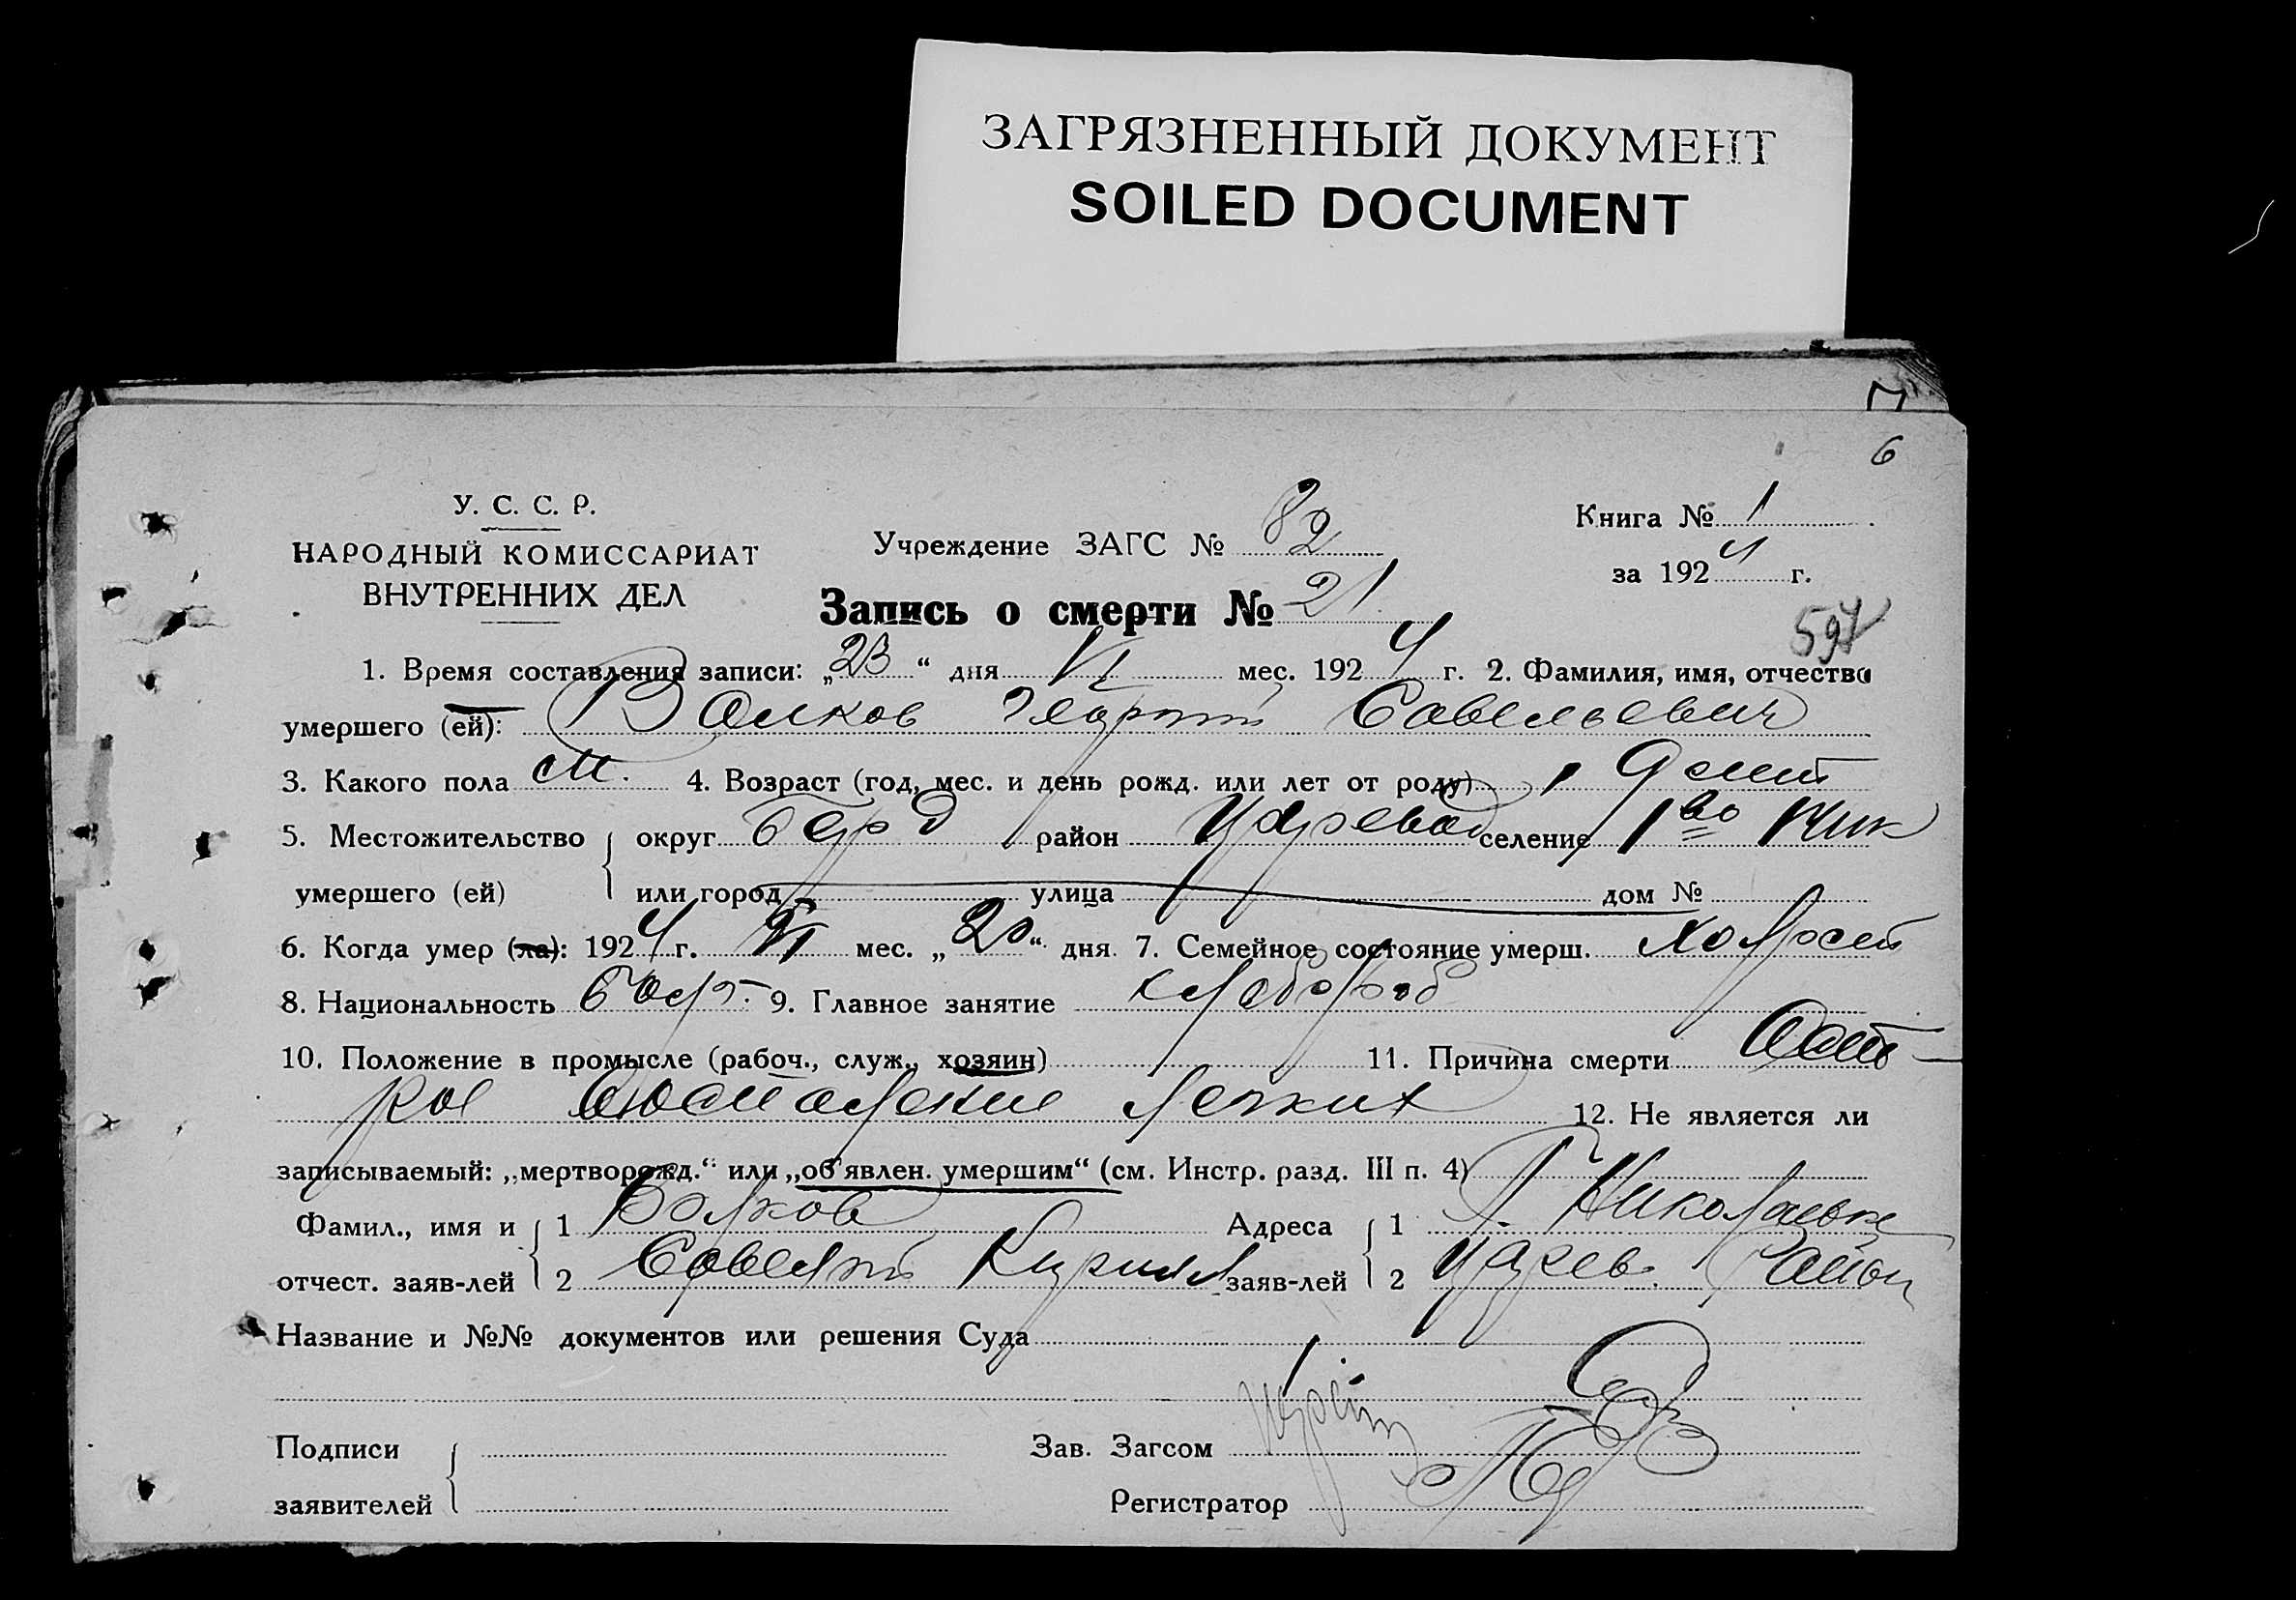 ЗАГРЯЗНЕННЫЙ ДОКУМЕНТ
SOILED DOCUMENT
6
У. С. С. Р.
НАРОДНЫЙ КОМИССАРИАТ
ВНУТРЕННИХ ДЕЛ
Учреждение ЗАГС № 82
Книга № 1
за 1924 г.
Запись о смерти № 21
1. Время составления записи: „23“ дня VI мес. 1924 г. 2. Фамилия, имя, отчество
умершего (ей): Волков Георгий Савельевич
3. Какого пола м. 4. Возраст (год, мес. и день рожд. или лет от роду) 9 лет
5. Местожительство умершего (ей) округ район селение
или город улица дом №
6. Когда умер (ла): 1924 г. VI мес. „20“ дня. 7. Семейное состояние умерш. Холост
8. Национальность 9. Главное занятие хлебороб
10. Положение в промысле (рабоч., служ., хозяин) 11. Причина смерти Ост
рое воспаление легких 12. Не является ли
записываемый: „мертворожд.“ или „об'явлен. умершим“ (см. Инстр. разд. III п. 4)
Фамил., имя и отчест. заяв-лей 1 Волков Адреса заяв-лей 1 Николаевке
2 Савелий Кирилл 2 Царев. район
Название и №№ документов или решения Суда
Подписи заявителей
Зав. Загсом
Регистратор